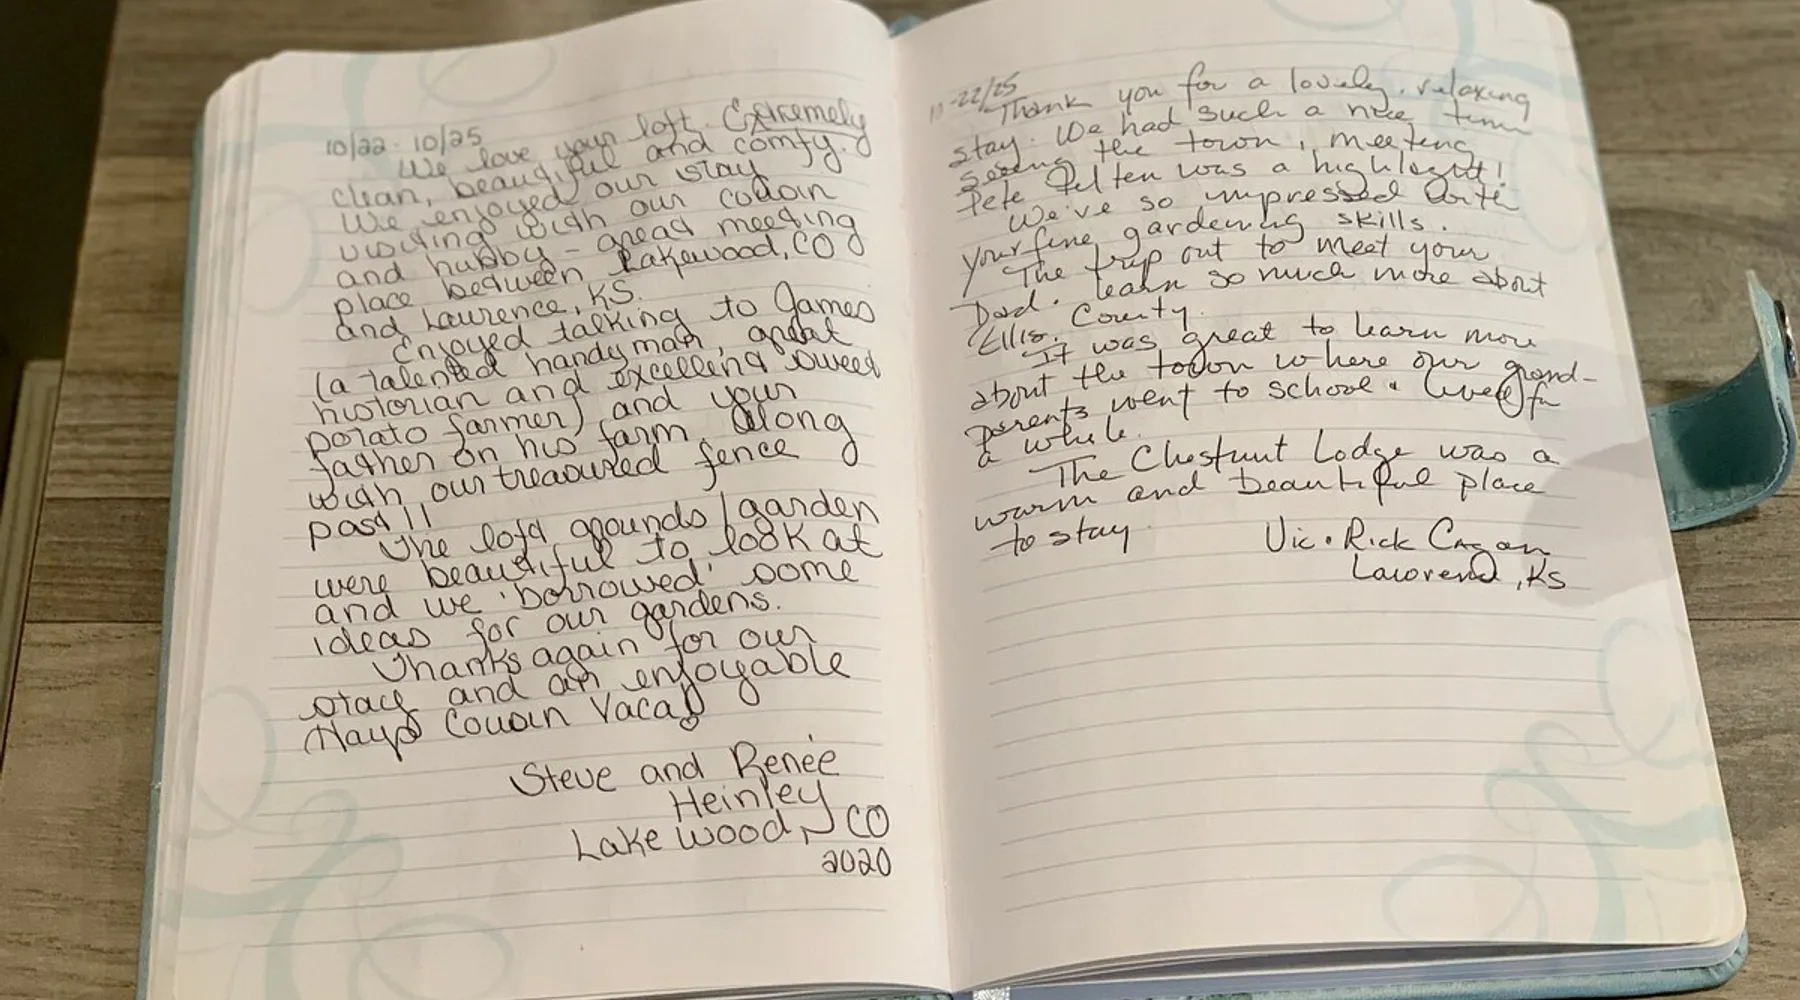 10/22 - 10/25
We love your loft. Extremely
clean, beautiful and comfy.
We enjoyed our stay
visiting with our cousin
and hubby - great meeting
place between Lakewood, CO
and Laurence, KS.
Enjoyed talking to James
(a talented handyman, great
historian and excellent sweet
potato farmer) and your
father on his farm along
with our treasured fence
post!!
The loft grounds/garden
were beautiful to look at
and we 'borrowed' some
ideas for our gardens.
Thanks again for our
stay and an enjoyable
Hays Cousin Vaca!
Steve and Renée
Heinley
Lakewood, CO
2020
-22/25
Thank you for a lovely, relaxing
stay. We had such a nice time
seeing the town, meeting
Pete Felten was a highlight!
We've so impressed with
your fine gardening skills.
The trip out to meet your
Dad. learn so much more about
Ellis. County.
It was great to learn more
about the town where our grand-
parents went to school & lived for
a while.
The Chestnut Lodge was a
warm and beautiful place
to stay.
Vic & Rick
KS